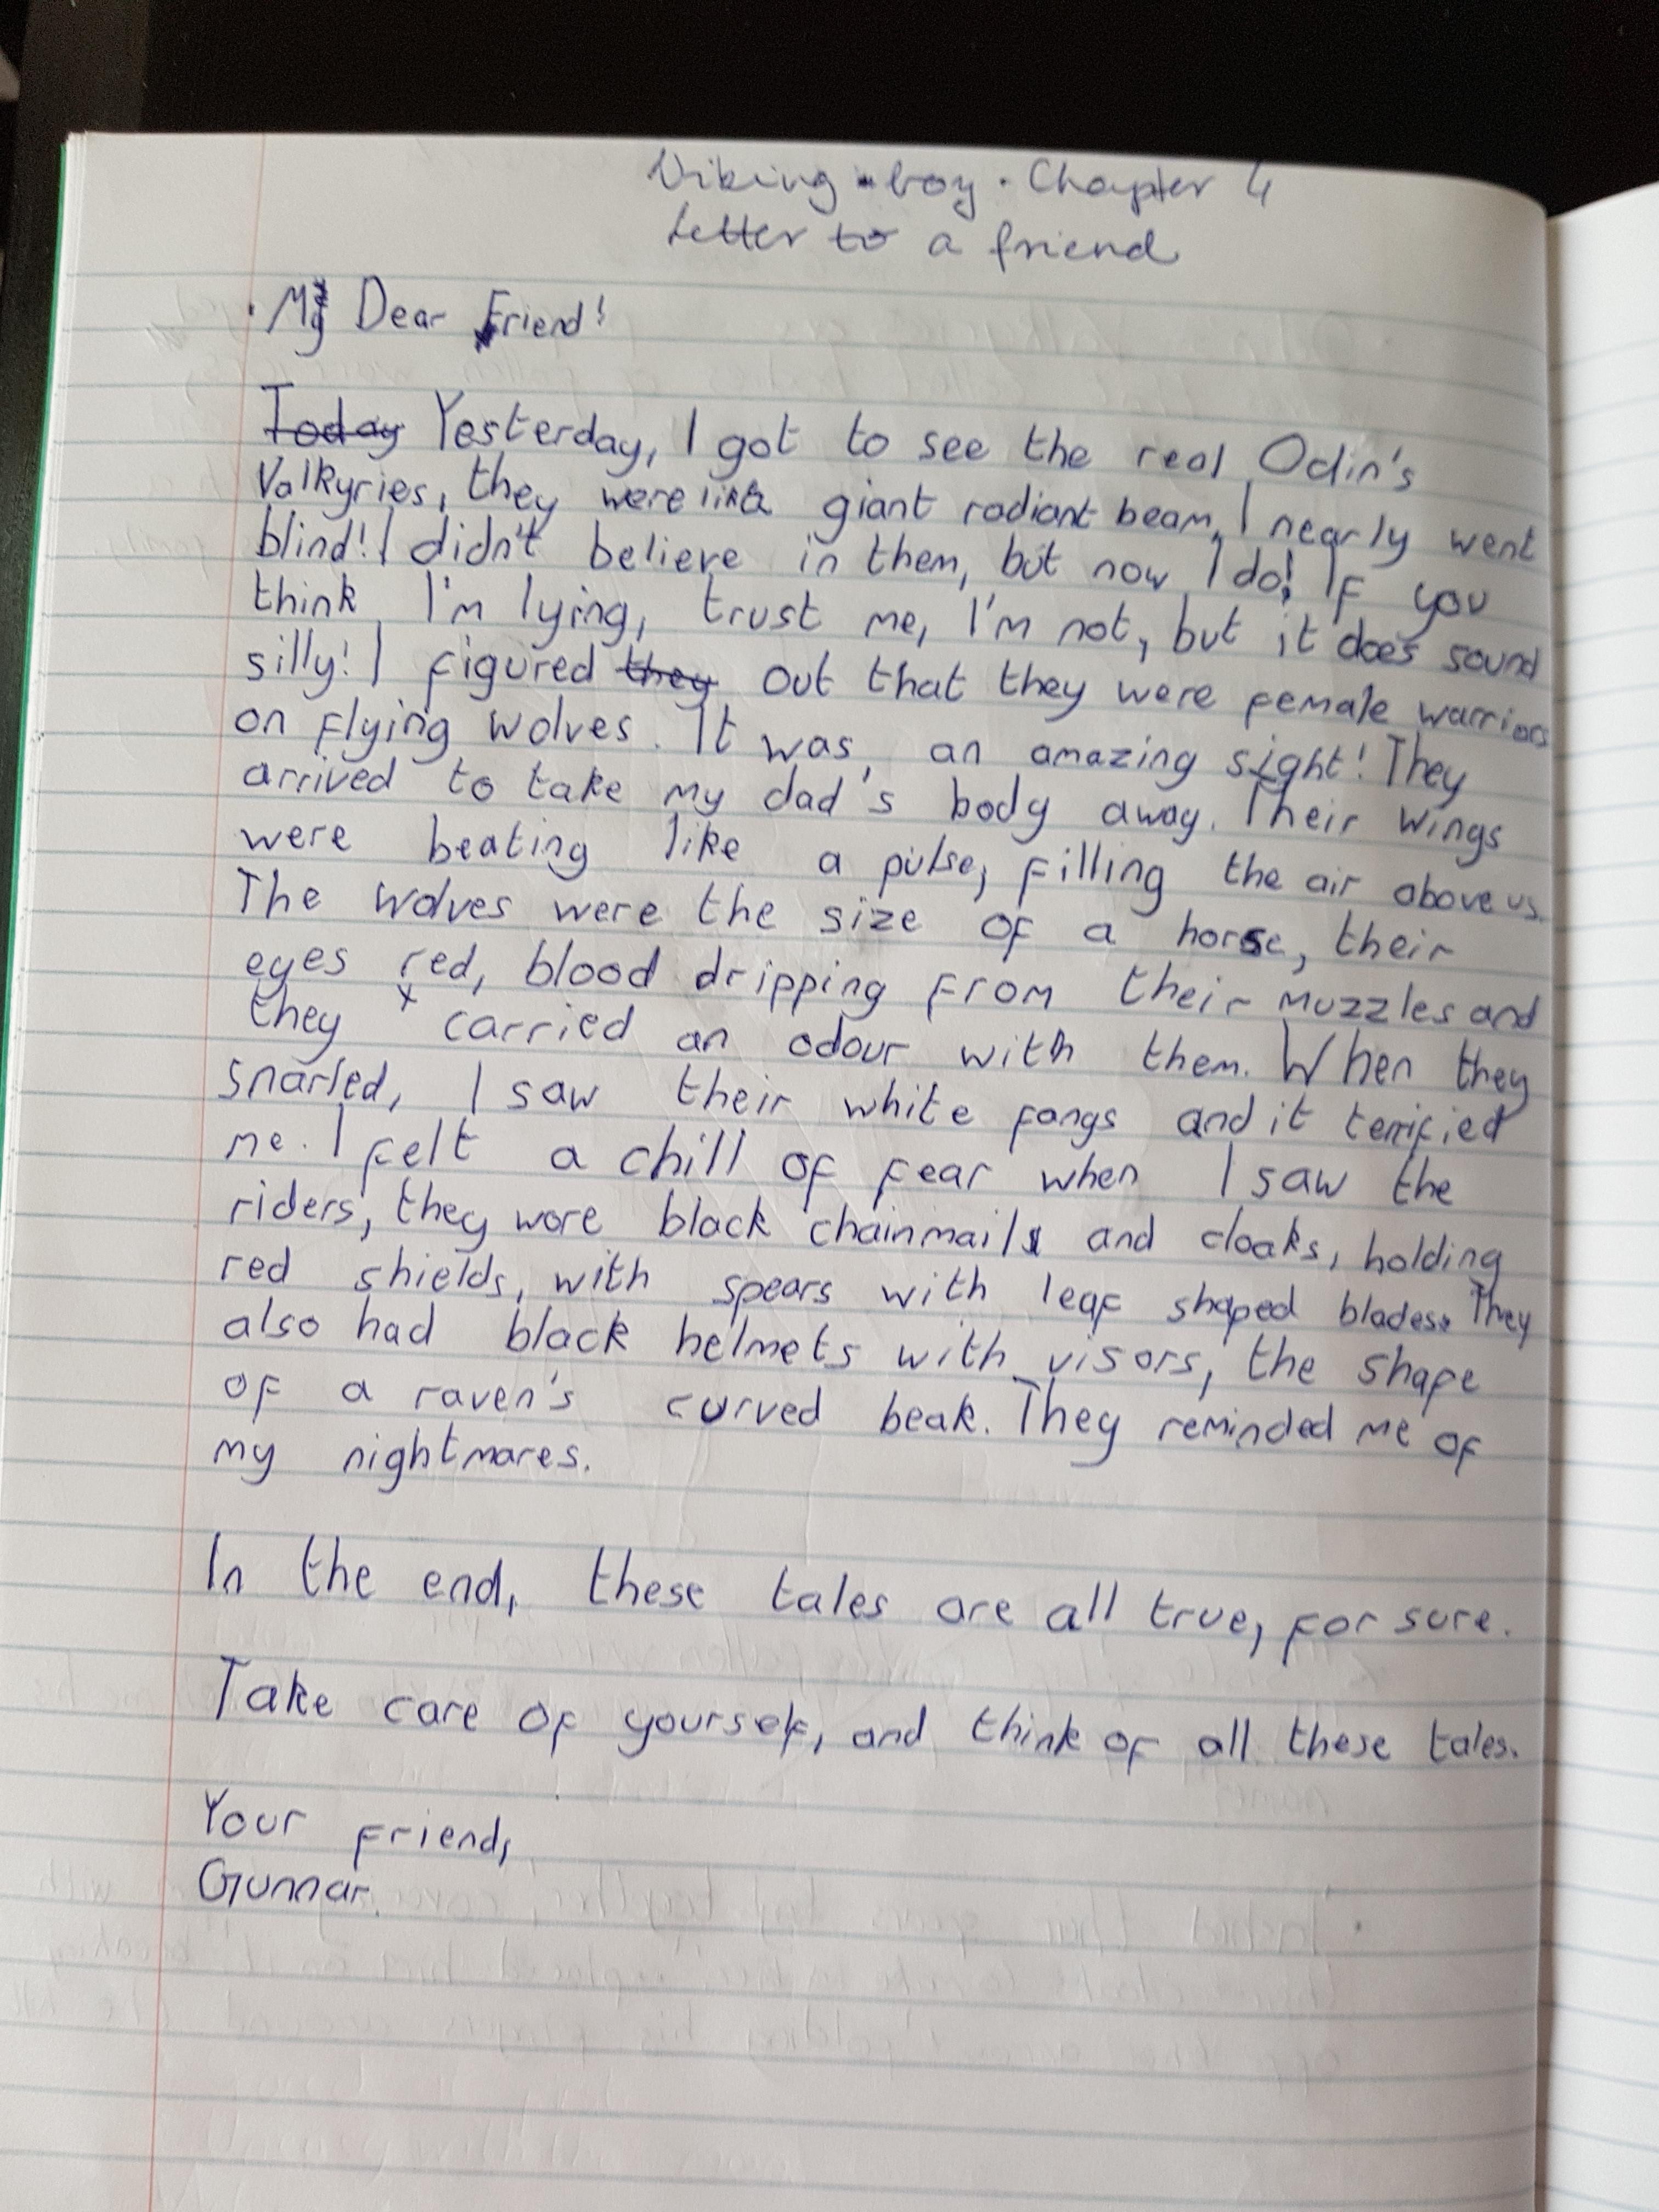 Viking-boy. Chapter 4
Letter to a friend
. My Dear Friend!
Today Yesterday, I got to see the real Odin's
Valkyries, they were like giant radiant beam, I nearly went
blind! I didn't believe in them, but now I do! If you
think I'm lying, trust me, I'm not, but it does sound
silly! I figured they out that they were female warriors
on flying wolves. It was, an amazing sight! They
arrived to take my dad's body away. Their wings
were beating like a pulse, filling the air above us.
The wolves were the size of a horse, their
eyes red, blood dripping from their muzzles and
they x carried an odour with them. When they
snarled, I saw their white fangs and it terrified
me. I felt a chill of fear when I saw the
riders, they wore black chainmails and cloaks, holding
red shields, with spears with leaf shaped blades. They
also had black helmets with visors, the shape
of a raven's curved beak. They reminded me of
my nightmares.
In the end, these tales are all true, for sure.
Take care of yourself, and think of all these tales.
Your friend,
Gunnar.